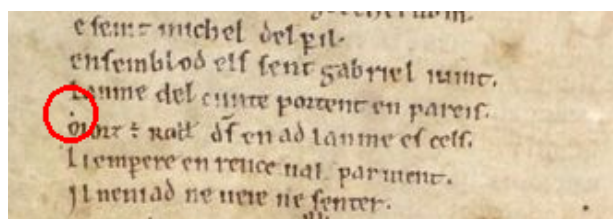 e seint michel del pil.
ensemblod els sent gabriel iuint.
Lanme del cunte portent en pareis.
roll' ds en ad lanme es cels.
Li empere en rence ual paruient.
Il neniad ne ueie ne senter.